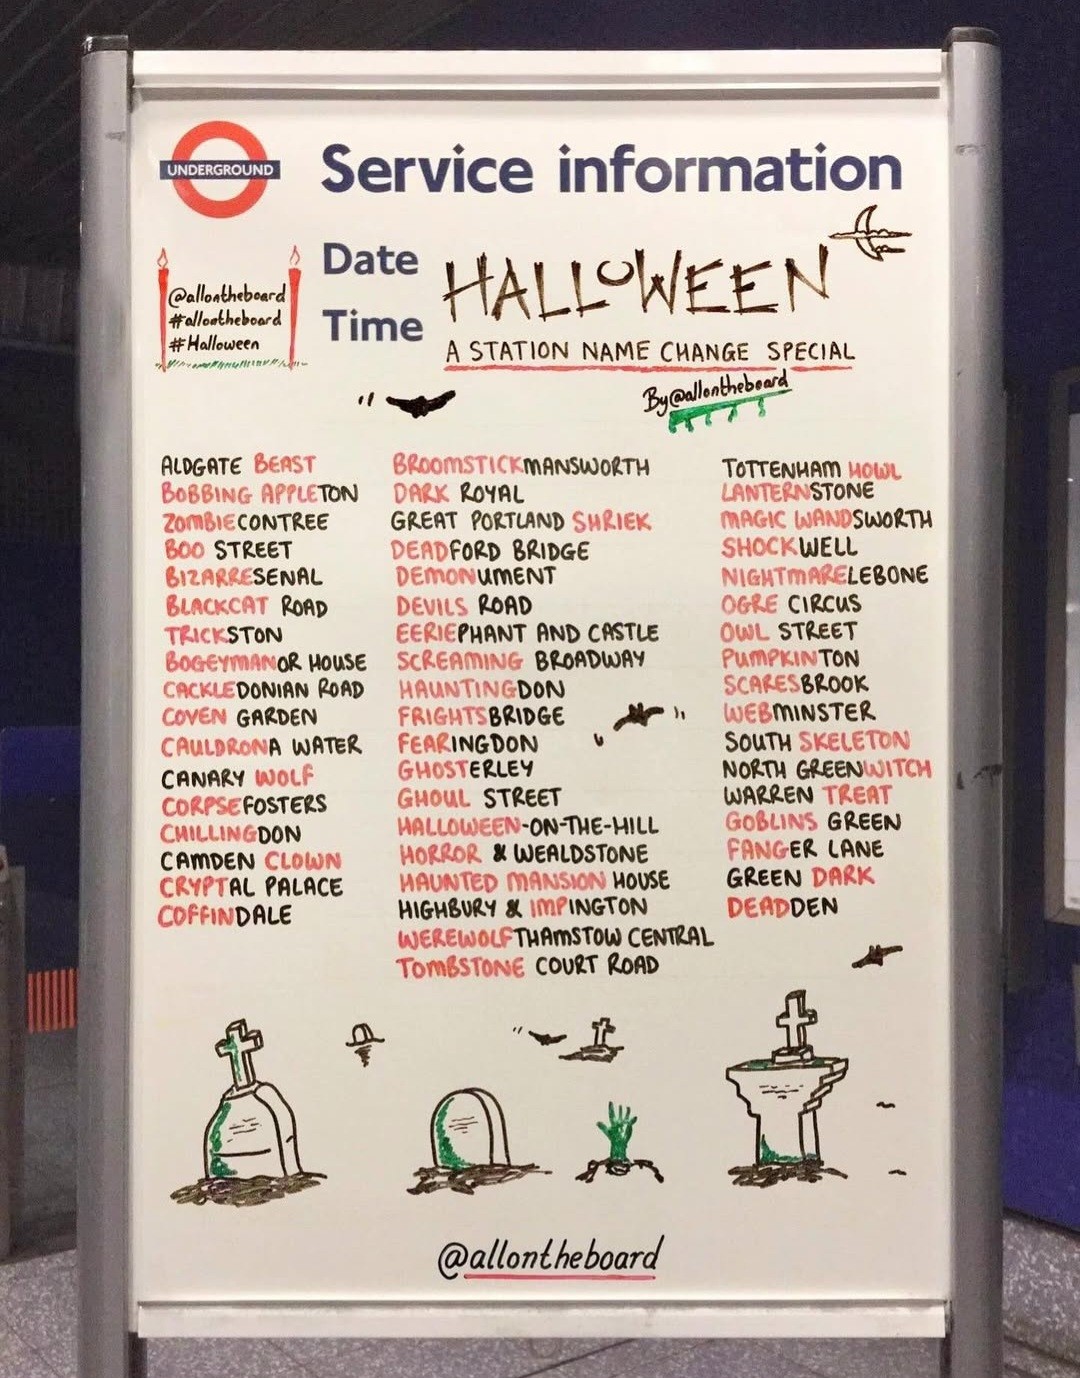 UNDERGROUND
Service information
Date
Time
HALLOWEEN
@allontheboard
#allontheboard
#Halloween
A STATION NAME CHANGE SPECIAL
By @allontheboard
ALDGATE BEAST
BOBBING APPLETON
ZOMBIECONTREE
BOO STREET
BIZARRESENAL
BLACKCAT ROAD
TRICKSTON
BOGEYMANOR HOUSE
CACKLEDONIAN ROAD
COVEN GARDEN
CAULDRONA WATER
CANARY WOLF
CORPSEFOSTERS
CHILLINGDON
CAMDEN CLOWN
CRYPTAL PALACE
COFFINDALE
BROOMSTICKMANSWORTH
DARK ROYAL
GREAT PORTLAND SHRIEK
DEADFORD BRIDGE
DEMONUMENT
DEVILS ROAD
EERIEPHANT AND CASTLE
SCREAMING BROADWAY
HAUNTINGDON
FRIGHTSBRIDGE
FEARINGDON
GHOSTERLEY
GHOUL STREET
HALLOWEEN-ON-THE-HILL
HORROR & WEALDSTONE
HAUNTED MANSION HOUSE
HIGHBURY & IMPINGTON
WEREWOLFTHAMSTOW CENTRAL
TOMBSTONE COURT ROAD
TOTTENHAM HOWL
LANTERNSTONE
MAGIC WANDSWORTH
SHOCKWELL
NIGHTMARELEBONE
OGRE CIRCUS
OWL STREET
PUMPKINTON
SCARESBROOK
WEBMINSTER
SOUTH SKELETON
NORTH GREENWITCH
WARREN TREAT
GOBLINS GREEN
FANGER LANE
GREEN DARK
DEADDEN
@allontheboard